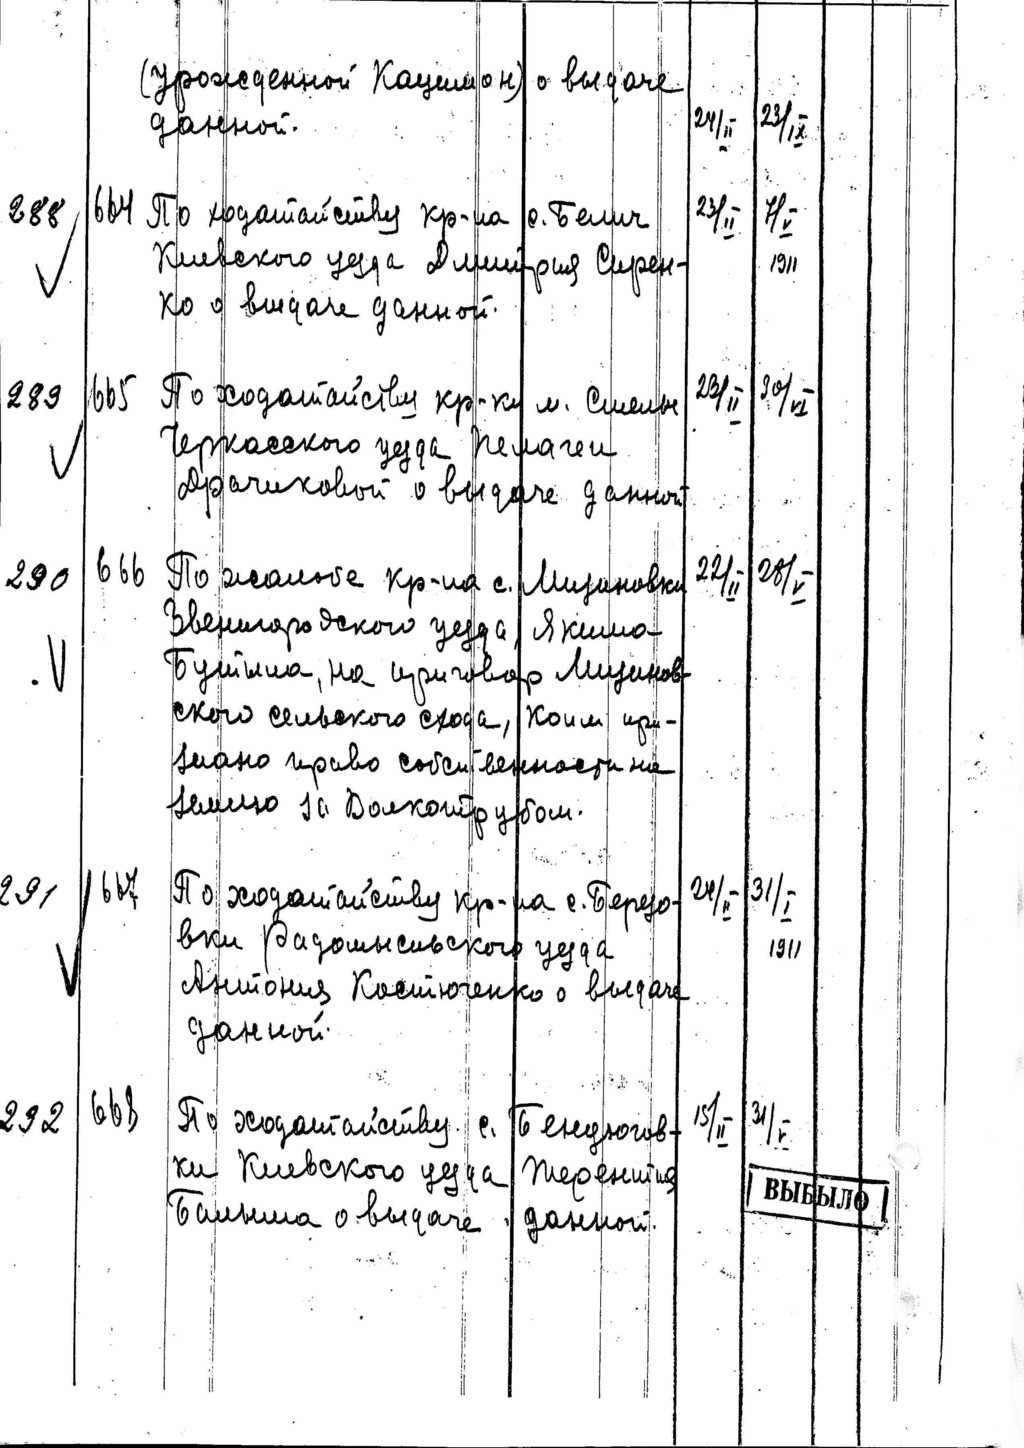 (урожденной Кацман) о выдаче
данной. 24/II 23/IX
288 664 По ходатайству кр-на с. Белич 23/II 7/V
Киевского уезда Дмитрия Сирен- 1911
ко о выдаче данной.
289 665 По ходатайству кр-ки м. Смелы 23/II 30/VI
Черкасского уезда Пелагеи
Драчиковой о выдаче данной
290 666 По жалобе кр-на с. Мизиновки 22/II 28/V
Звенигородского уезда, Якима
на приговор Мизинов-
ского сельского схода, коим при-
знано право собственности на
землю за Волкотрубом.
291 667 По ходатайству кр-на с. Березо- 24/II 31/I
вки Радомысльского уезда 1911
Антония Костюченко о выдаче
данной.
292 668 По ходатайству с. Бендюгов- 15/II 31/V
ки Киевского уезда Терентия
о выдаче данной.
ВЫБЫЛО